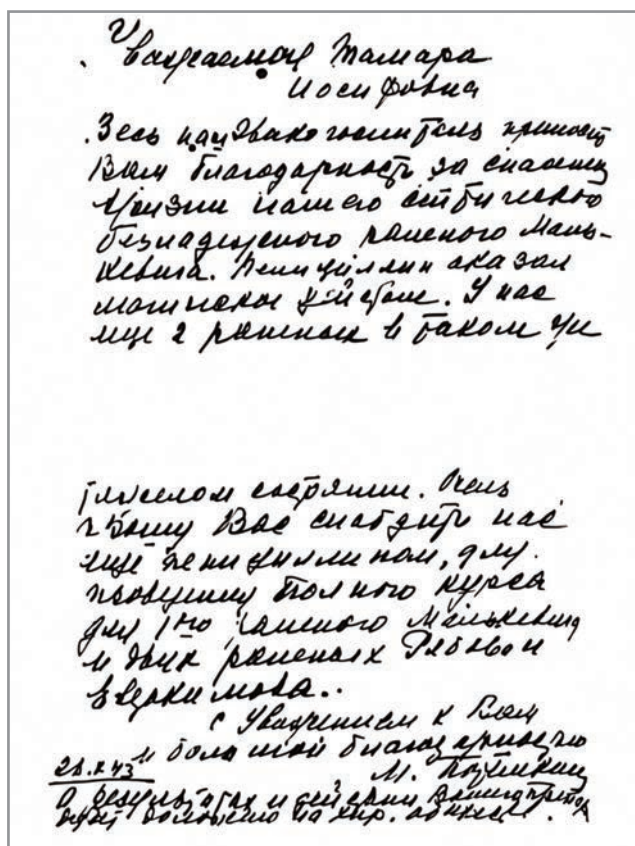 Уважаемая Тамара
Иосифовна
Весь наш эвакогоспиталь приносит
Вам благодарность за спасение
жизни нашего септического
безнадежного раненого Мань-
кевича. Пенициллин оказал
магическое действие. У нас
еще 2 раненых в таком же
тяжелом состоянии. Очень
прошу Вас снабдить нас
еще пенициллином, для
проведения полного курса
для 1го раненого Манькевича
и двух раненых Рябова и
Евдокимова..
с Уважением к Вам
и большой благодарностью
28.X 43 М.
О результатах и действии Вашего препарата
будет доложено на хир.